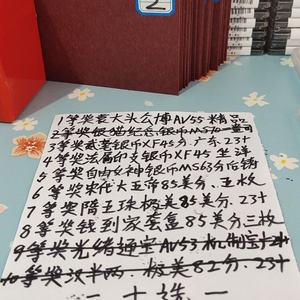 2
1等奖袁大头公博AV55精品
2等奖银猫纪念银币MS70一盎司
3等奖武彝银币XF45分.广东.23+
4等奖法属印支银币XF45坐洋
5等奖自由女神银币MS63分后铸
6等奖宋代大五帝85美分.五枚
7等奖隋五珠极美85分.23+
8等奖钱到家套盒85美分三枚
9等奖光绪通宝AV53机制
10等奖汉半两.极美82分.23+
二十选一